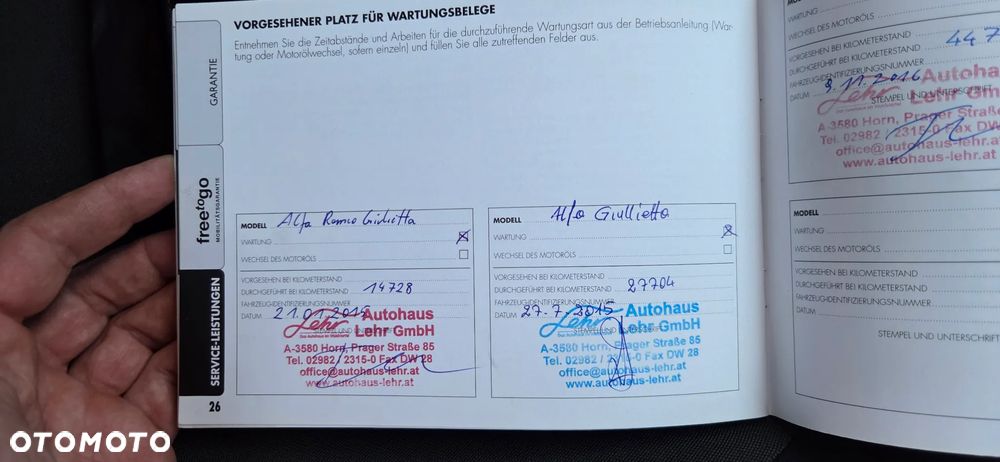 VORGESEHENER PLATZ FÜR WARTUNGSBELEGE
Entnehmen Sie die Zeitabstände und Arbeiten für die durchzuführende Wartungsart aus der Betriebsanleitung (War-
tung oder Motorölwechsel, sofern einzeln) und füllen Sie alle zutreffenden Felder aus.
GARANTIE
freetogo
MOBILITÄTSGARANTIE
SERVICE-LEISTUNGEN
26
MODELL Alfa Romeo Giulietta
WARTUNG
WECHSEL DES MOTORÖLS
VORGESEHEN BEI KILOMETERSTAND
DURCHGEFÜHRT BEI KILOMETERSTAND 14728
FAHRZEUGIDENTIFIZIERUNGSNUMMER
DATUM 21.01.2015
Lehr Autohaus
Lehr GmbH
A-3580 Horn, Prager Straße 85
Tel. 02982 / 2315-0 Fax DW 28
office@autohaus-lehr.at
www.autohaus-lehr.at
MODELL Alfa Giullietta
WARTUNG
WECHSEL DES MOTORÖLS
VORGESEHEN BEI KILOMETERSTAND
DURCHGEFÜHRT BEI KILOMETERSTAND 27704
FAHRZEUGIDENTIFIZIERUNGSNUMMER
DATUM 27.7.2015
Lehr Autohaus
Lehr GmbH
A-3580 Horn, Prager Straße 85
Tel. 02982 / 2315-0 Fax DW 28
office@autohaus-lehr.at
www.autohaus-lehr.at
MODELL
WARTUNG
WECHSEL DES MOTORÖLS
VORGESEHEN BEI KILOMETERSTAND
DURCHGEFÜHRT BEI KILOMETERSTAND 447
FAHRZEUGIDENTIFIZIERUNGSNUMMER
DATUM 9.11.2016
STEMPEL UND UNTERSCHRIFT
Lehr Autohaus
Lehr Gm
A-3580 Horn, Prager Straße
Tel. 02982 / 2315-0 Fax DW
office@autohaus-lehr.at
www.autohaus-lehr.at
MODELL
WARTUNG
WECHSEL DES MOTORÖLS
VORGESEHEN BEI KILOMETERSTAND
DURCHGEFÜHRT BEI KILOMETERSTAND
FAHRZEUGIDENTIFIZIERUNGSNUMMER
DATUM
STEMPEL UND UNTERSCHRIFT
OTOMOTO